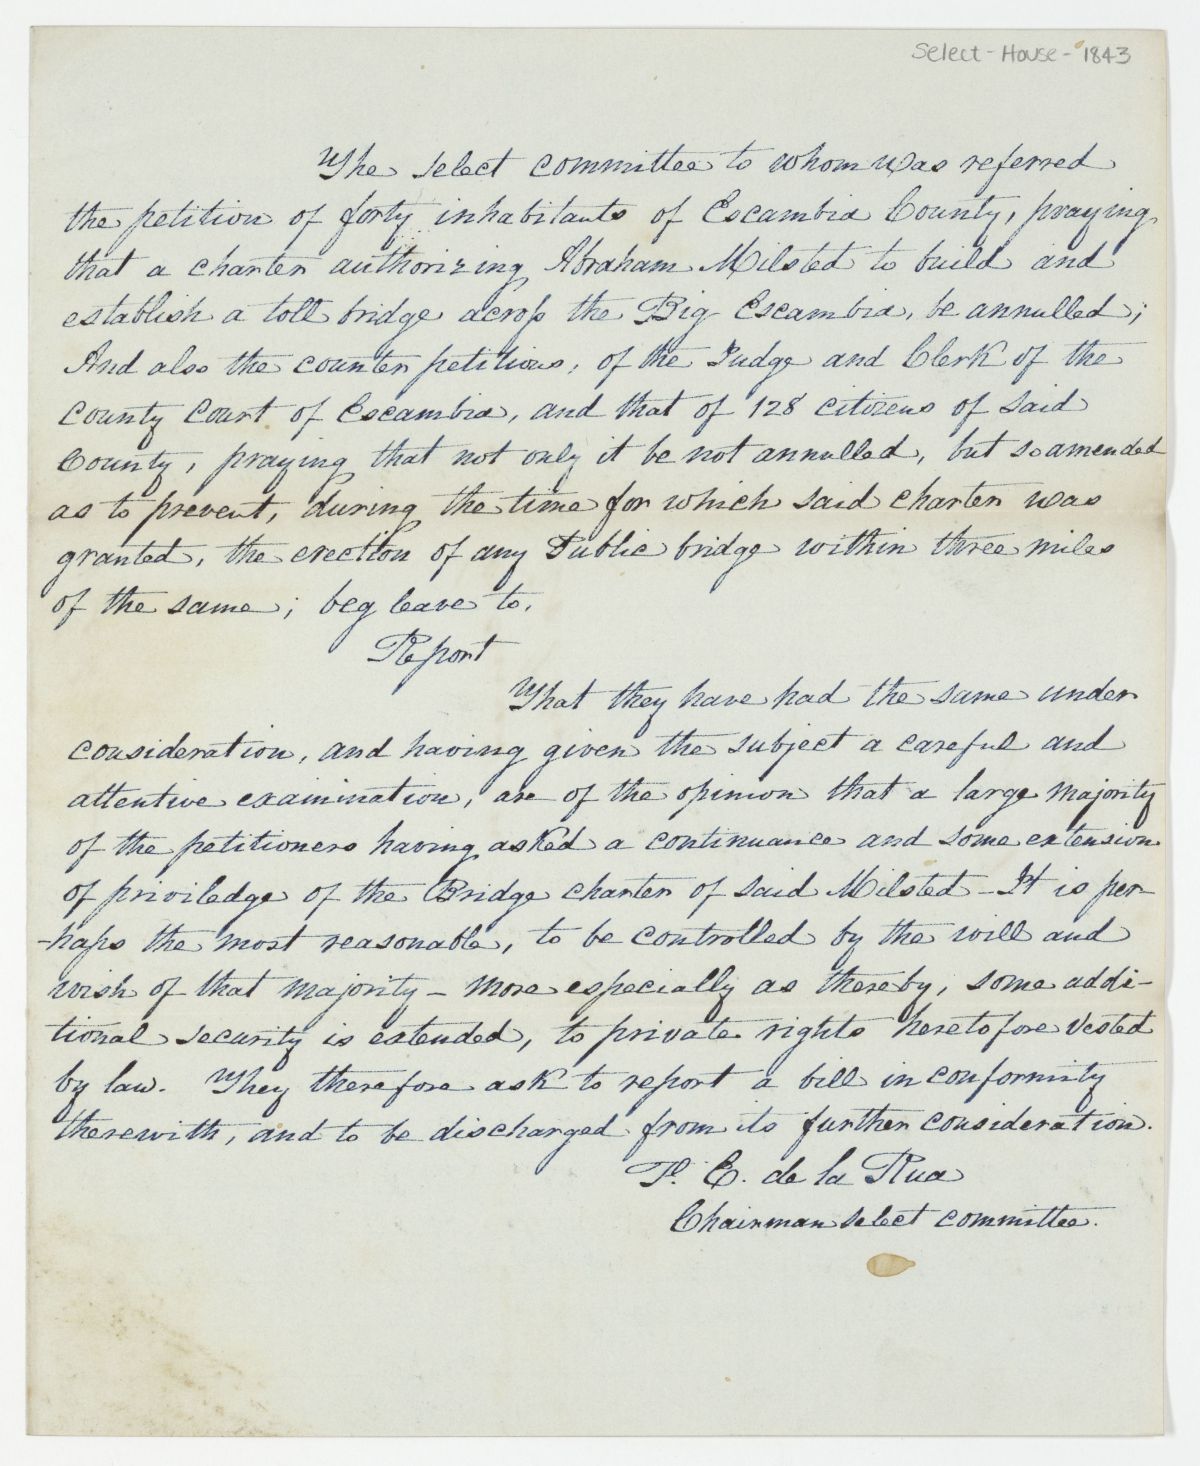 Select - House - 1843
The select committee to whom was referred
the petition of forty inhabitants of Escambia County, praying
that a charter authorizing Abraham Milsted to build and
establish a toll bridge across the Big Escambia, be annulled;
And also the counter petitions, of the Judge and Clerk of the
County Court of Escambia, and that of 128 citizens of said
County, praying that not only it be not annulled, but so amended
as to prevent, during the time for which said charter was
granted, the erection of any Public bridge within three miles
of the same; beg leave to,
Report
That they have had the same under
consideration, and having given the subject a careful and
attentive examination, are of the opinion that a large majority
of the petitioners having asked a continuance and some extension
of priviledge of the Bridge charter of said Milsted - It is per-
-haps the most reasonable, to be controlled by the will and
wish of that majority - more especially as thereby, some addi-
tional security is extended, to private rights heretofore vested
by law. They therefore ask to report a bill in conformity
therewith, and to be discharged from its further consideration.
P. E. de la Rua
Chairman select committee.